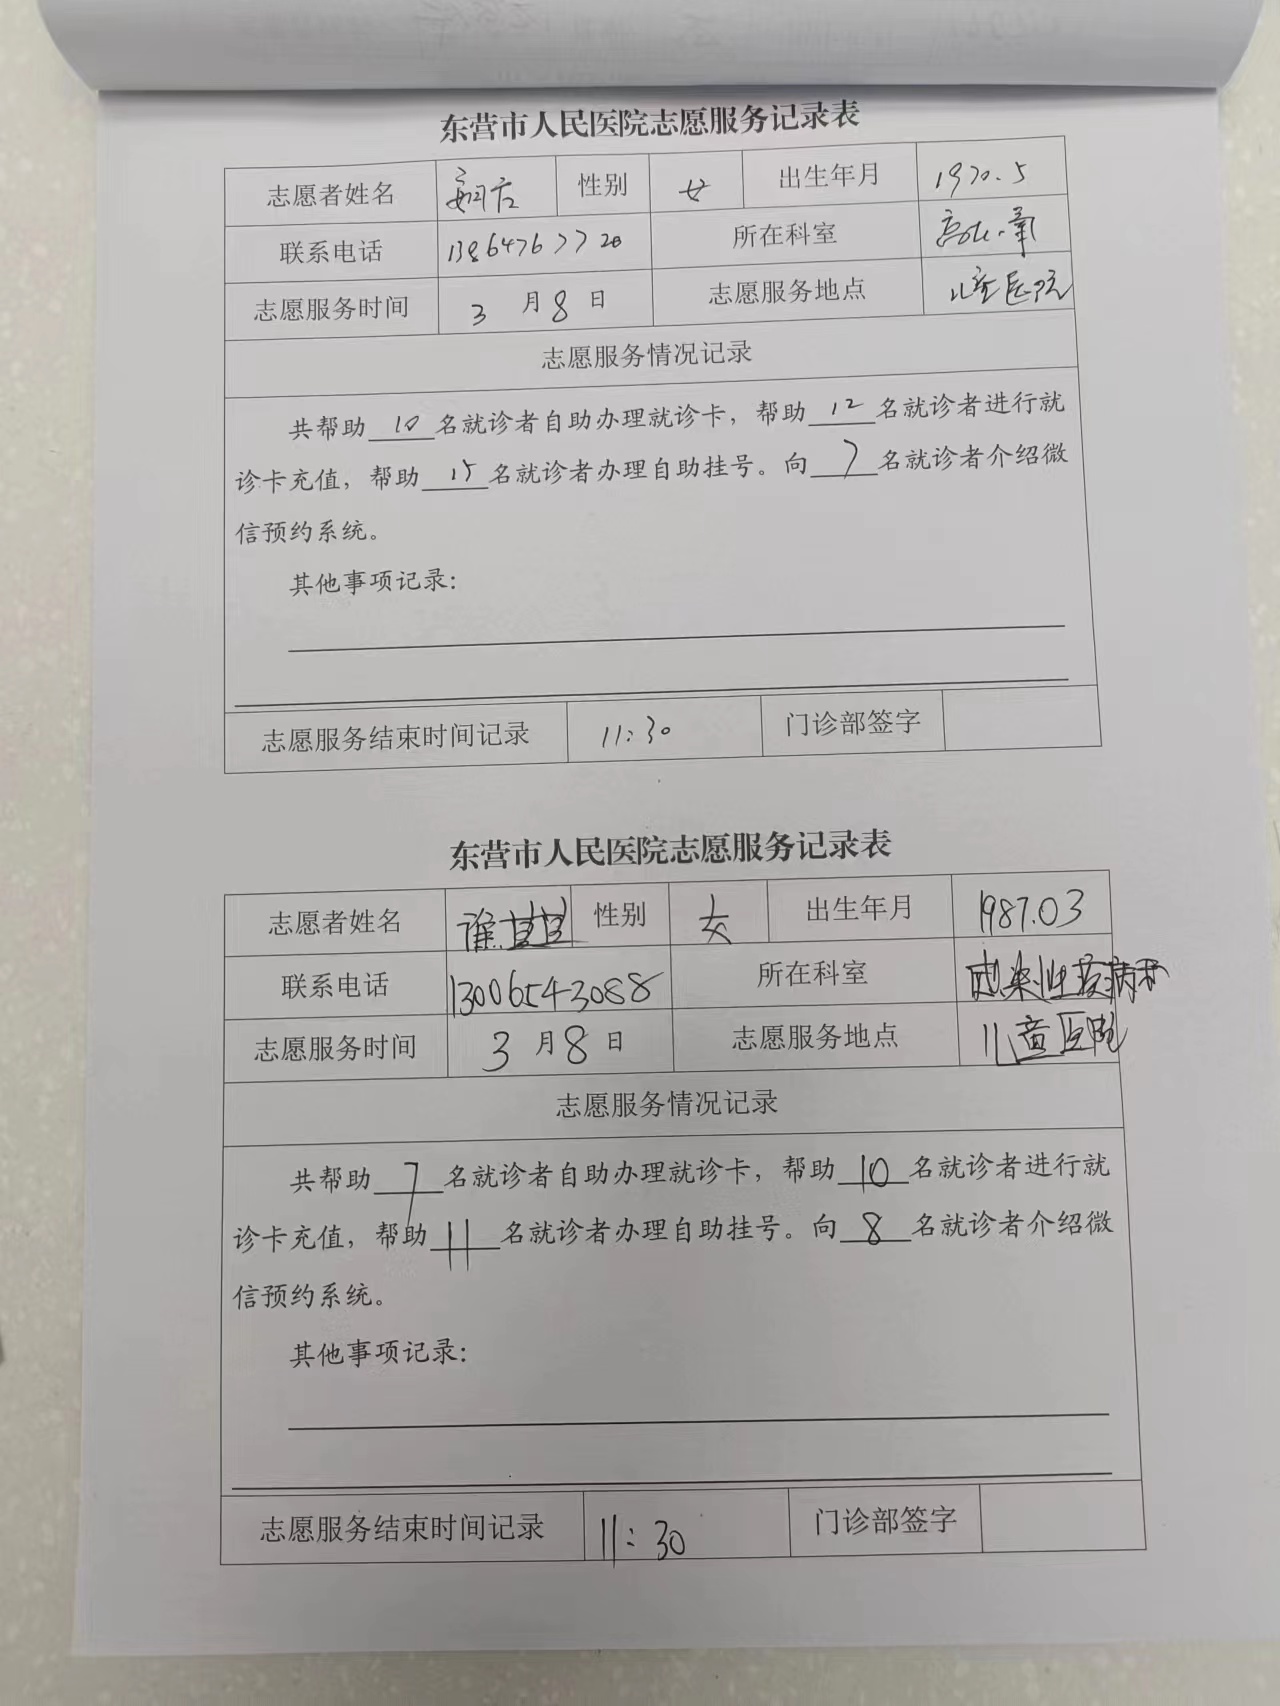 东营市人民医院志愿服务记录表
志愿者姓名 性别 女 出生年月 1970.5
联系电话 13864767720 所在科室
志愿服务时间 3月8日 志愿服务地点 儿童医院
志愿服务情况记录
共帮助10名就诊者自助办理就诊卡，帮助12名就诊者进行就
诊卡充值，帮助15名就诊者办理自助挂号。向7名就诊者介绍微
信预约系统。
其他事项记录：
志愿服务结束时间记录 11:30 门诊部签字
东营市人民医院志愿服务记录表
志愿者姓名 性别 女 出生年月 1987.03
联系电话 13006543088 所在科室 感染性疾病科
志愿服务时间 3月8日 志愿服务地点 儿童医院
志愿服务情况记录
共帮助7名就诊者自助办理就诊卡，帮助10名就诊者进行就
诊卡充值，帮助11名就诊者办理自助挂号。向8名就诊者介绍微
信预约系统。
其他事项记录：
志愿服务结束时间记录 11:30 门诊部签字